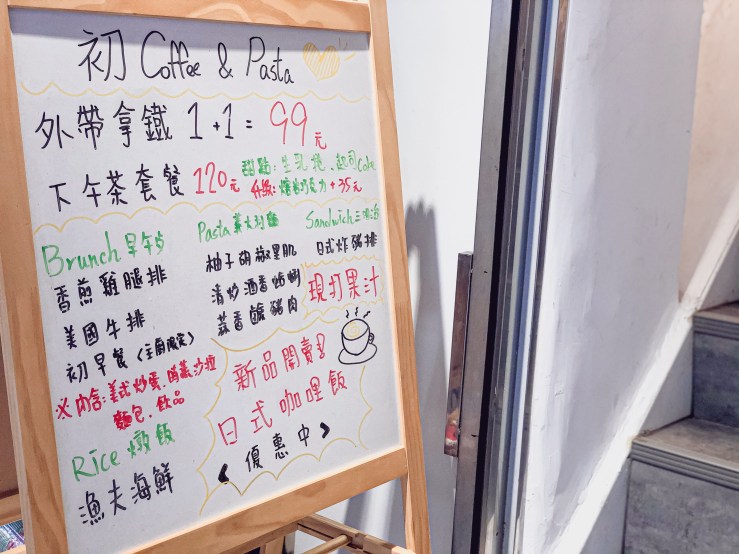 初 Coffee & Pasta
外帶拿鐵 1+1= 99元
下午茶套餐 120元
甜點:生乳捲、起司Cake
升級: +35元
Brunch 早午
香煎雞腿排
美國牛排
初早餐
※內含:美式炒蛋
麵包、飲品
Rice 燉飯
漁夫海鮮
Pasta 義大利麵
柚子胡椒
清炒酒香蛤蜊
蒜香鹹豬肉
Sandwich 三明治
日式炸豬排
現打果汁
新品開賣!
日式咖哩飯
<優惠中>